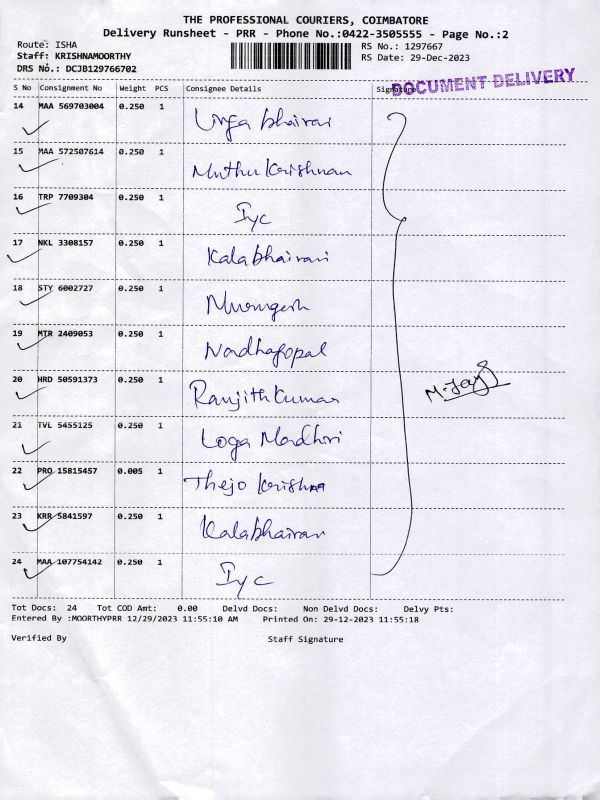 THE PROFESSIONAL COURIERS, COIMBATORE
Delivery Runsheet - PRR - Phone No.:0422-3505555 - Page No.:2
Route: ISHA RS No.: 1297667
Staff: KRISHNAMOORTHY RS Date: 29-Dec-2023
DRS No.: DCJB129766702
DOCUMENT DELIVERY
S No Consignment No Weight PCS Consignee Details Signature
14 MAA 569703004 0.250 1 bhairavi
15 MAA 572507614 0.250 1 Muthu Krishnan
16 TRP 7709304 0.250 1 Iyc
17 NKL 3308157 0.250 1 Kalabhairavi
18 STY 6002727 0.250 1 Murugesh
19 MTR 2409053 0.250 1 Nadhagopal
20 HRD 50591373 0.250 1 Ranjith Kumar
M. Jay
21 TVL 5455125 0.250 1 Loga Madhri
22 PRO 15815457 0.005 1 Thejo Krishna
23 KRR 5841597 0.250 1 Kalabhairav
24 MAA 107754142 0.250 1 Iyc
Tot Docs: 24 Tot COD Amt: 0.00 Delvd Docs: Non Delvd Docs: Delvy Pts:
Entered By :MOORTHYPRR 12/29/2023 11:55:10 AM Printed On: 29-12-2023 11:55:18
Verified By Staff Signature